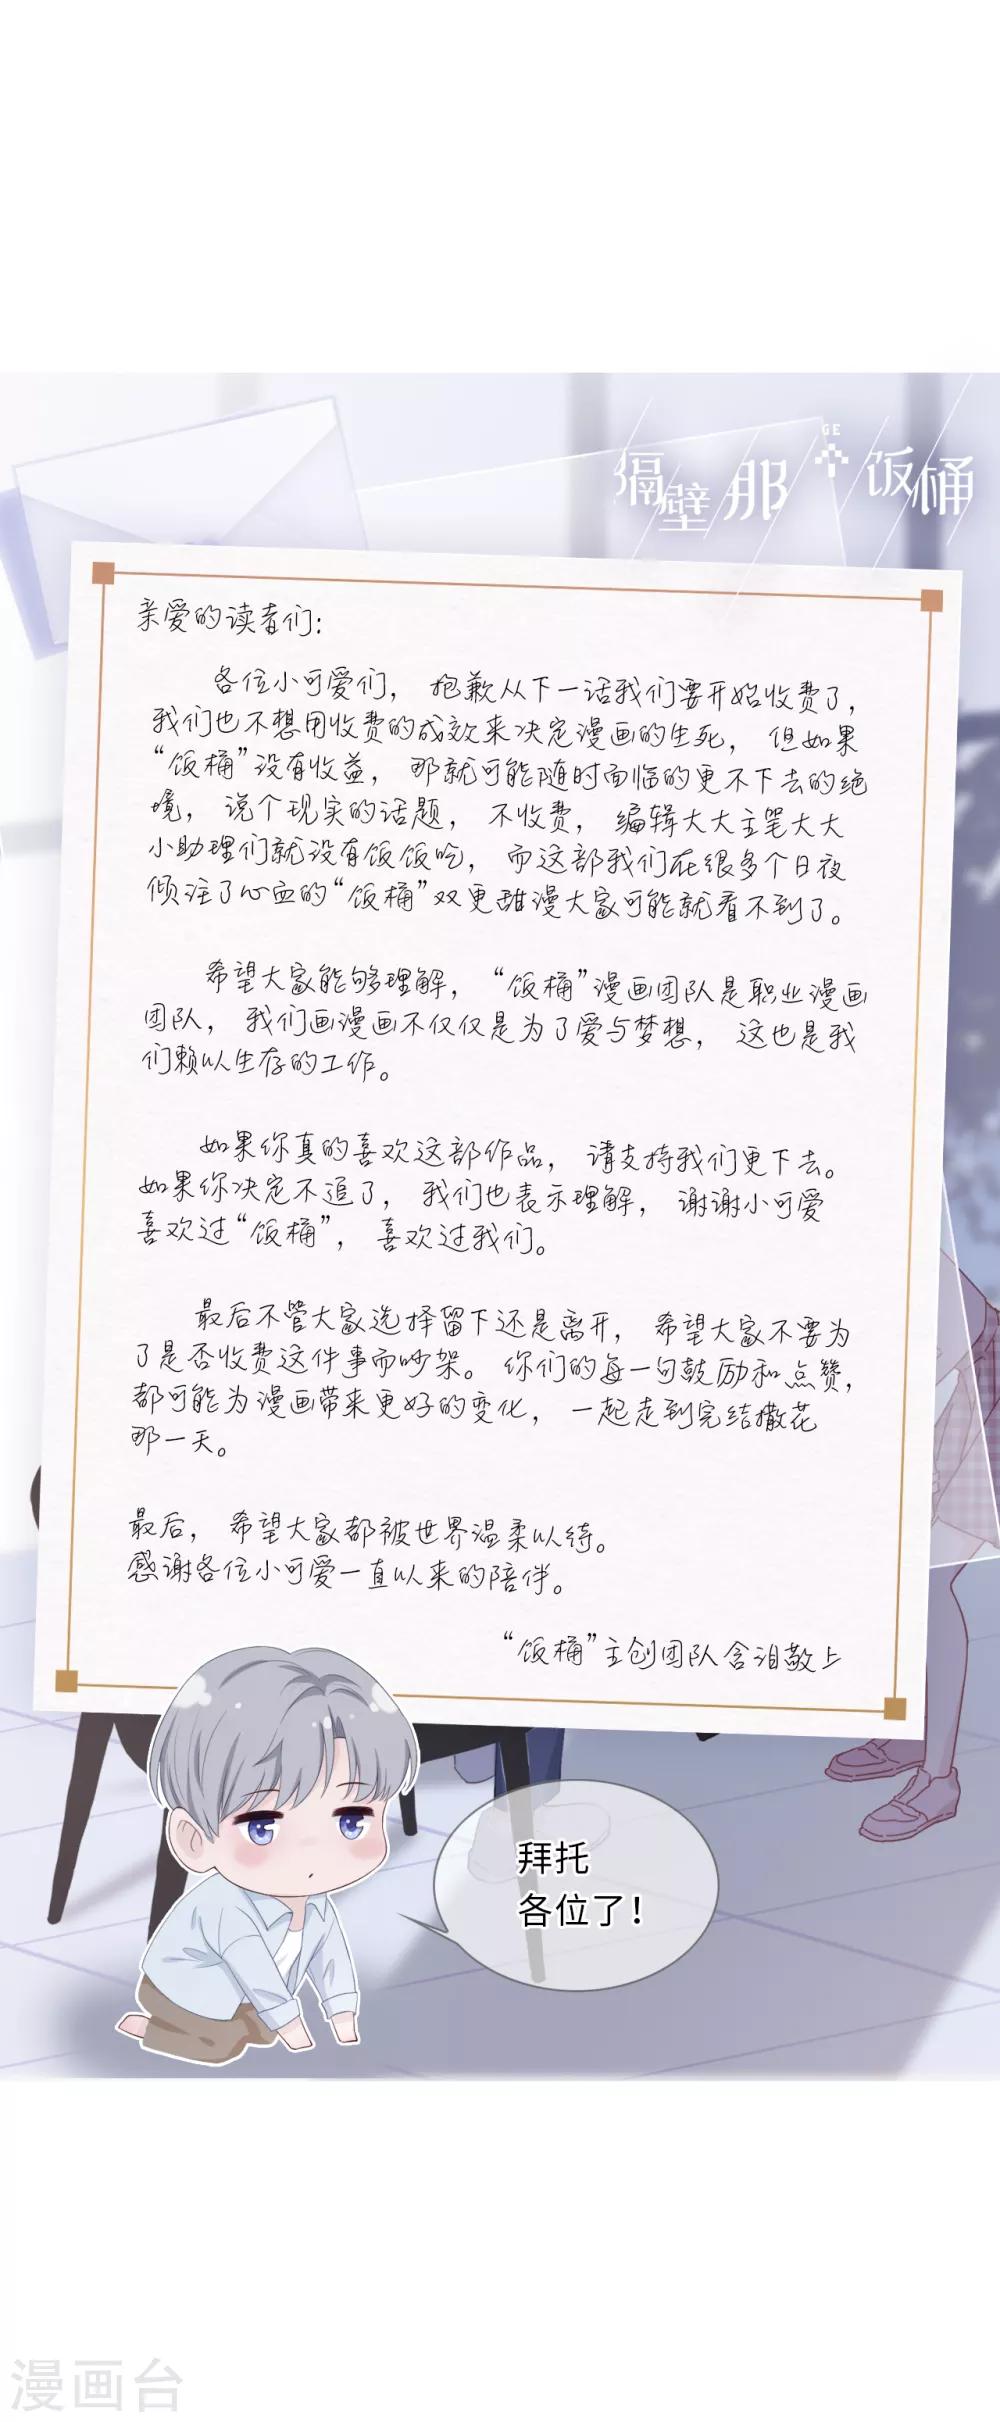 GE
隔壁那个饭桶
亲爱的读者们:
各位小可爱们, 抱歉从下一话我们要开始收费了,
我们也不想用收费的成效来决定漫画的生死, 但如果
“饭桶”没有收益, 那就可能随时面临的更不下去的绝
境, 说个现实的话题, 不收费, 编辑大大主笔大大
小助理们就没有饭饭吃, 而这部我们在很多个日夜
倾注了心血的“饭桶”双更甜漫大家可能就看不到了。
希望大家能够理解, “饭桶”漫画团队是职业漫画
团队, 我们画漫画不仅仅是为了爱与梦想, 这也是我
们赖以生存的工作。
如果你真的喜欢这部作品, 请支持我们更下去。
如果你决定不追了, 我们也表示理解, 谢谢小可爱
喜欢过“饭桶”, 喜欢过我们。
最后不管大家选择留下还是离开, 希望大家不要为
了是否收费这件事而吵架。你们的每一句鼓励和点赞,
都可能为漫画带来更好的变化, 一起走到完结撒花
那一天。
最后, 希望大家都被世界温柔以待。
感谢各位小可爱一直以来的陪伴。
“饭桶”主创团队含泪敬上
拜托
各位了!
漫画台